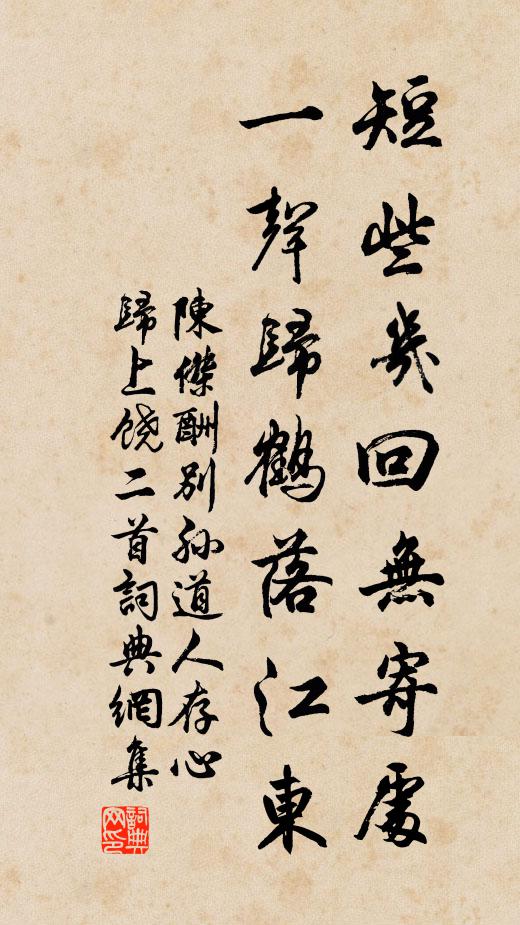 短些幾回無寄處
一聲歸鶴落江東
陳傑酬別孫道人存心
歸上饒二首詞典網集
詞典
网印